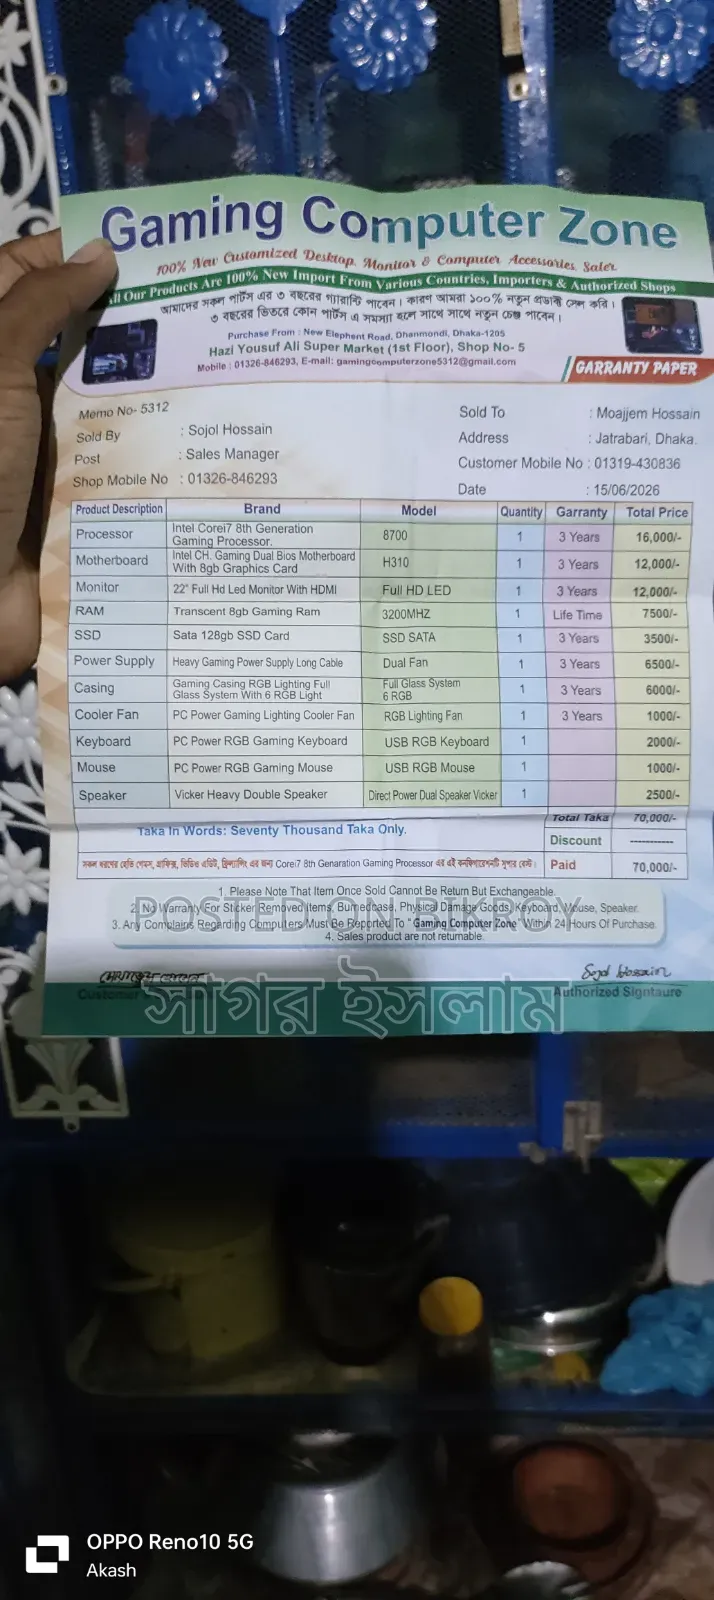 Gaming Computer Zone
100% New Customized Desktop, Monitor & Computer Accessories, Saler
All Our Products Are 100% New Import From Various Countries, Importers & Authorized Shops
আমাদের সকল পার্টস এর ৩ বছরের গ্যারান্টি পাবেন। কারণ আমরা ১০০% নতুন প্রডাক্ট সেল করি।
৩ বছরের ভিতরে কোন পার্টস এ সমস্যা হলে সাথে সাথে নতুন চেঞ্জ পাবেন।
Purchase From : New Elephent Road, Dhanmondi, Dhaka-1205
Hazi Yousuf Ali Super Market (1st Floor), Shop No- 5
Mobile : 01326-846293, E-mail: gamingcomputerzone5312@gmail.com
GARRANTY PAPER
Memo No- 5312
Sold By : Sojol Hossain
Post : Sales Manager
Shop Mobile No : 01326-846293
Sold To : Moajjem Hossain
Address : Jatrabari, Dhaka.
Customer Mobile No : 01319-430836
Date : 15/06/2026
Product Description Brand Model Quantity Garranty Total Price
Processor Intel Corei7 8th Generation Gaming Processor. 8700 1 3 Years 16,000/-
Motherboard Intel CH. Gaming Dual Bios Motherboard With 8gb Graphics Card H310 1 3 Years 12,000/-
Monitor 22" Full Hd Led Monitor With HDMI Full HD LED 1 3 Years 12,000/-
RAM Transcent 8gb Gaming Ram 3200MHZ 1 Life Time 7500/-
SSD Sata 128gb SSD Card SSD SATA 1 3 Years 3500/-
Power Supply Heavy Gaming Power Supply Long Cable Dual Fan 1 3 Years 6500/-
Casing Gaming Casing RGB Lighting Full Glass System With 6 RGB Light Full Glass System 6 RGB 1 3 Years 6000/-
Cooler Fan PC Power Gaming Lighting Cooler Fan RGB Lighting Fan 1 3 Years 1000/-
Keyboard PC Power RGB Gaming Keyboard USB RGB Keyboard 1 2000/-
Mouse PC Power RGB Gaming Mouse USB RGB Mouse 1 1000/-
Speaker Vicker Heavy Double Speaker Direct Power Dual Speaker Vicker 1 2500/-
Total Taka 70,000/-
Taka In Words: Seventy Thousand Taka Only.
Discount -----------
সকল ধরণের হেভি গেমস, গ্রাফিক্স, ভিডিও এডিট, ফ্রিল্যান্সিং এর জন্য Corei7 8th Genaration Gaming Processor এর এই কনফিগারেশনটি সুপার বেস্ট। Paid 70,000/-
1. Please Note That Item Once Sold Cannot Be Return But Exchangeable.
2. No Warranty For Sticker Removed Items, Burnedcase, Physical Damage Goods, Keyboard, Mouse, Speaker.
3. Any Complains Regarding Computers Must Be Reported To "Gaming Computer Zone" Within 24 Hours Of Purchase.
4. Sales product are not returnable.
POSTED ON BIKROY
Sojol Hossain
Customer
Authorized Signtaure
সাগর ইসলাম
OPPO Reno10 5G
Akash